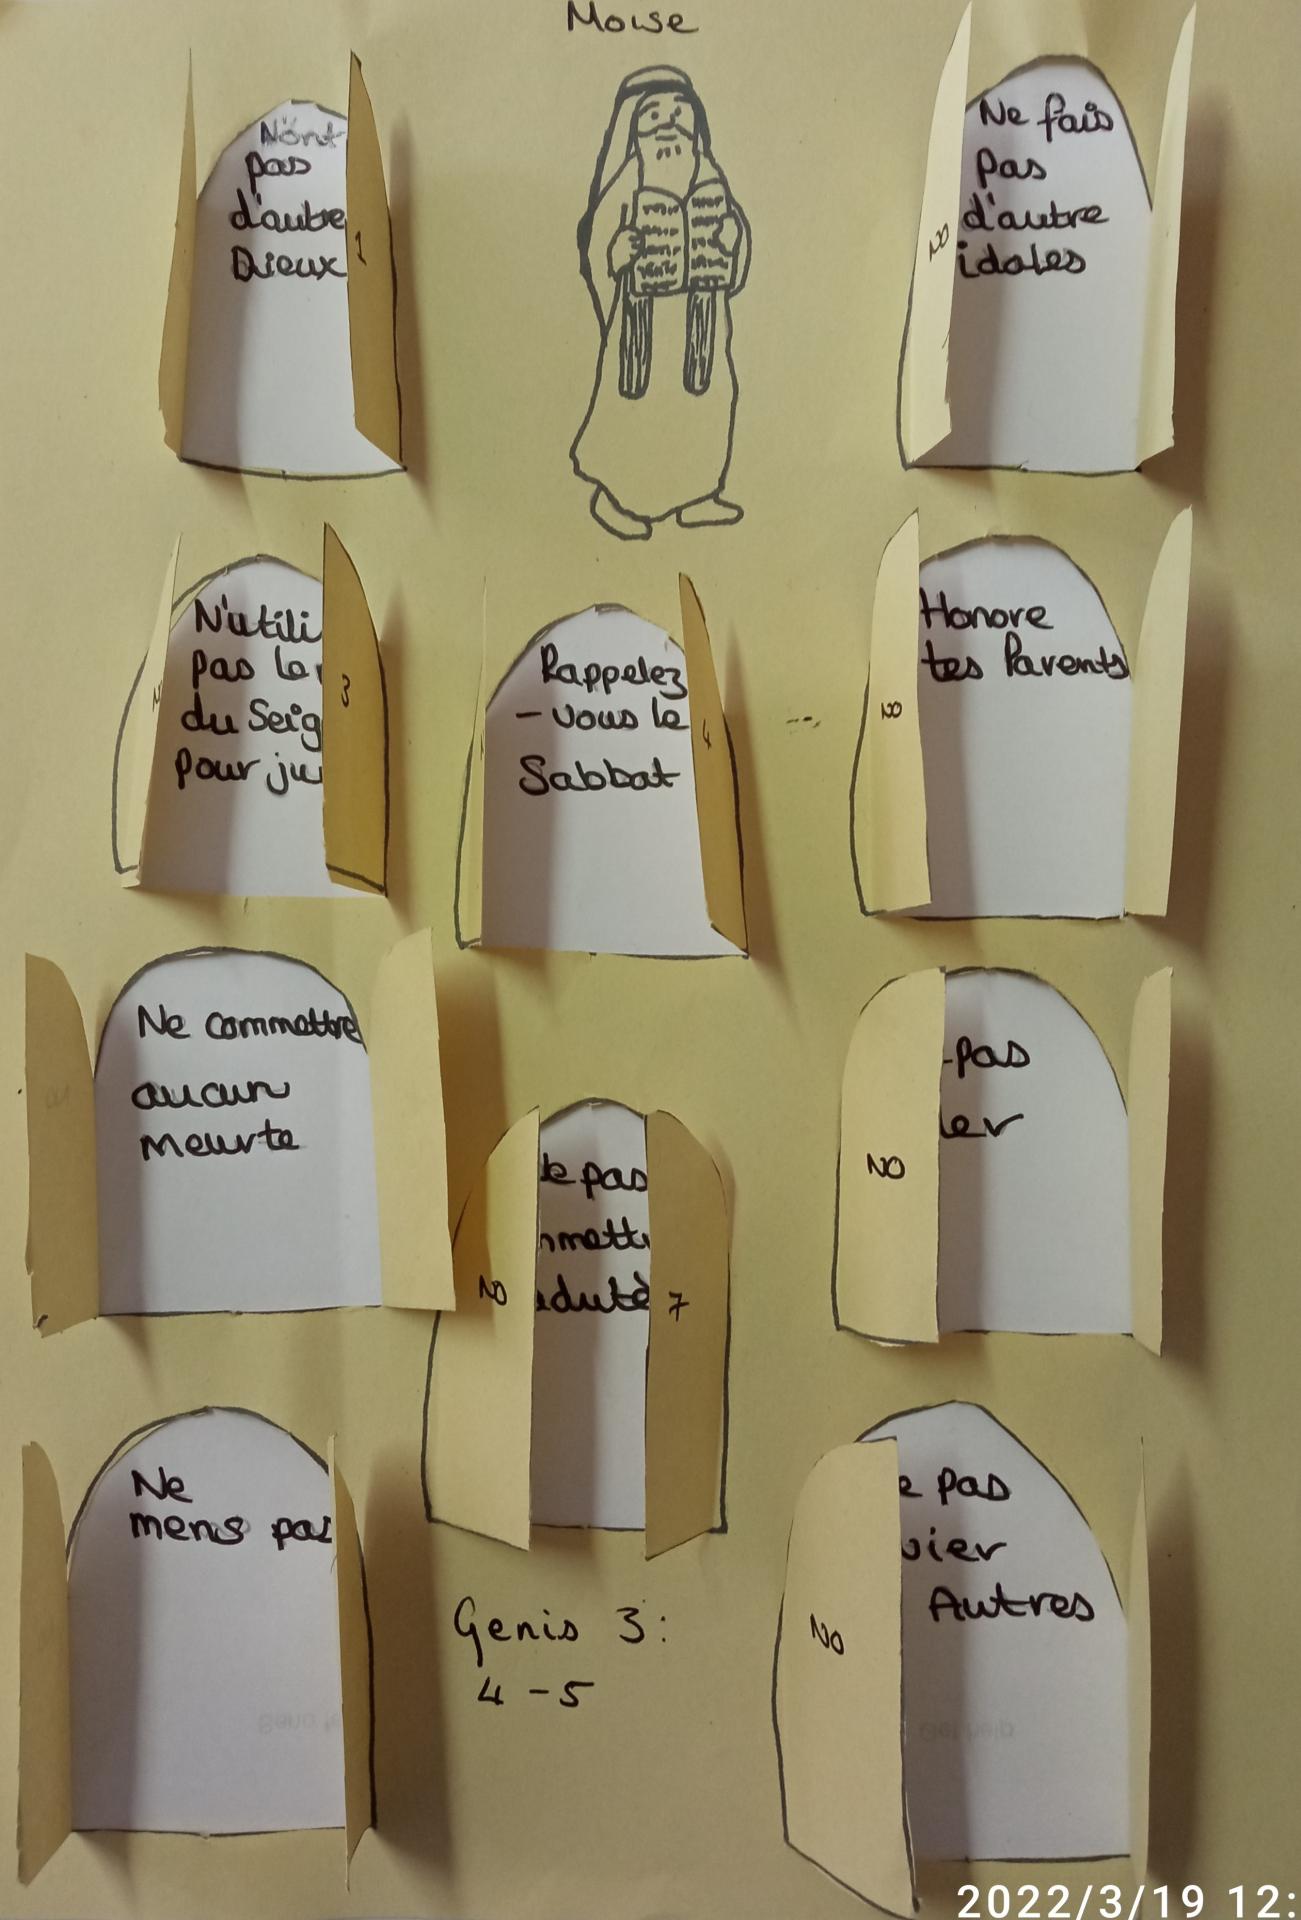 Moise
N'ont
pas
d'autre
Dieux
1
NO
Ne fais
pas
d'autre
idoles
N'utili
pas le
du Seig
pour ju
3
Rappelez
- vous le
Sabbat
4
NO
Honore
tes Parents
Ne commettre
aucun
meurte
NO
e pas
mett
adutè
7
NO
-pas
ler
Ne
mens pas
NO
e pas
vier
Autres
Genis 3:
4-5
2022/3/19 12: